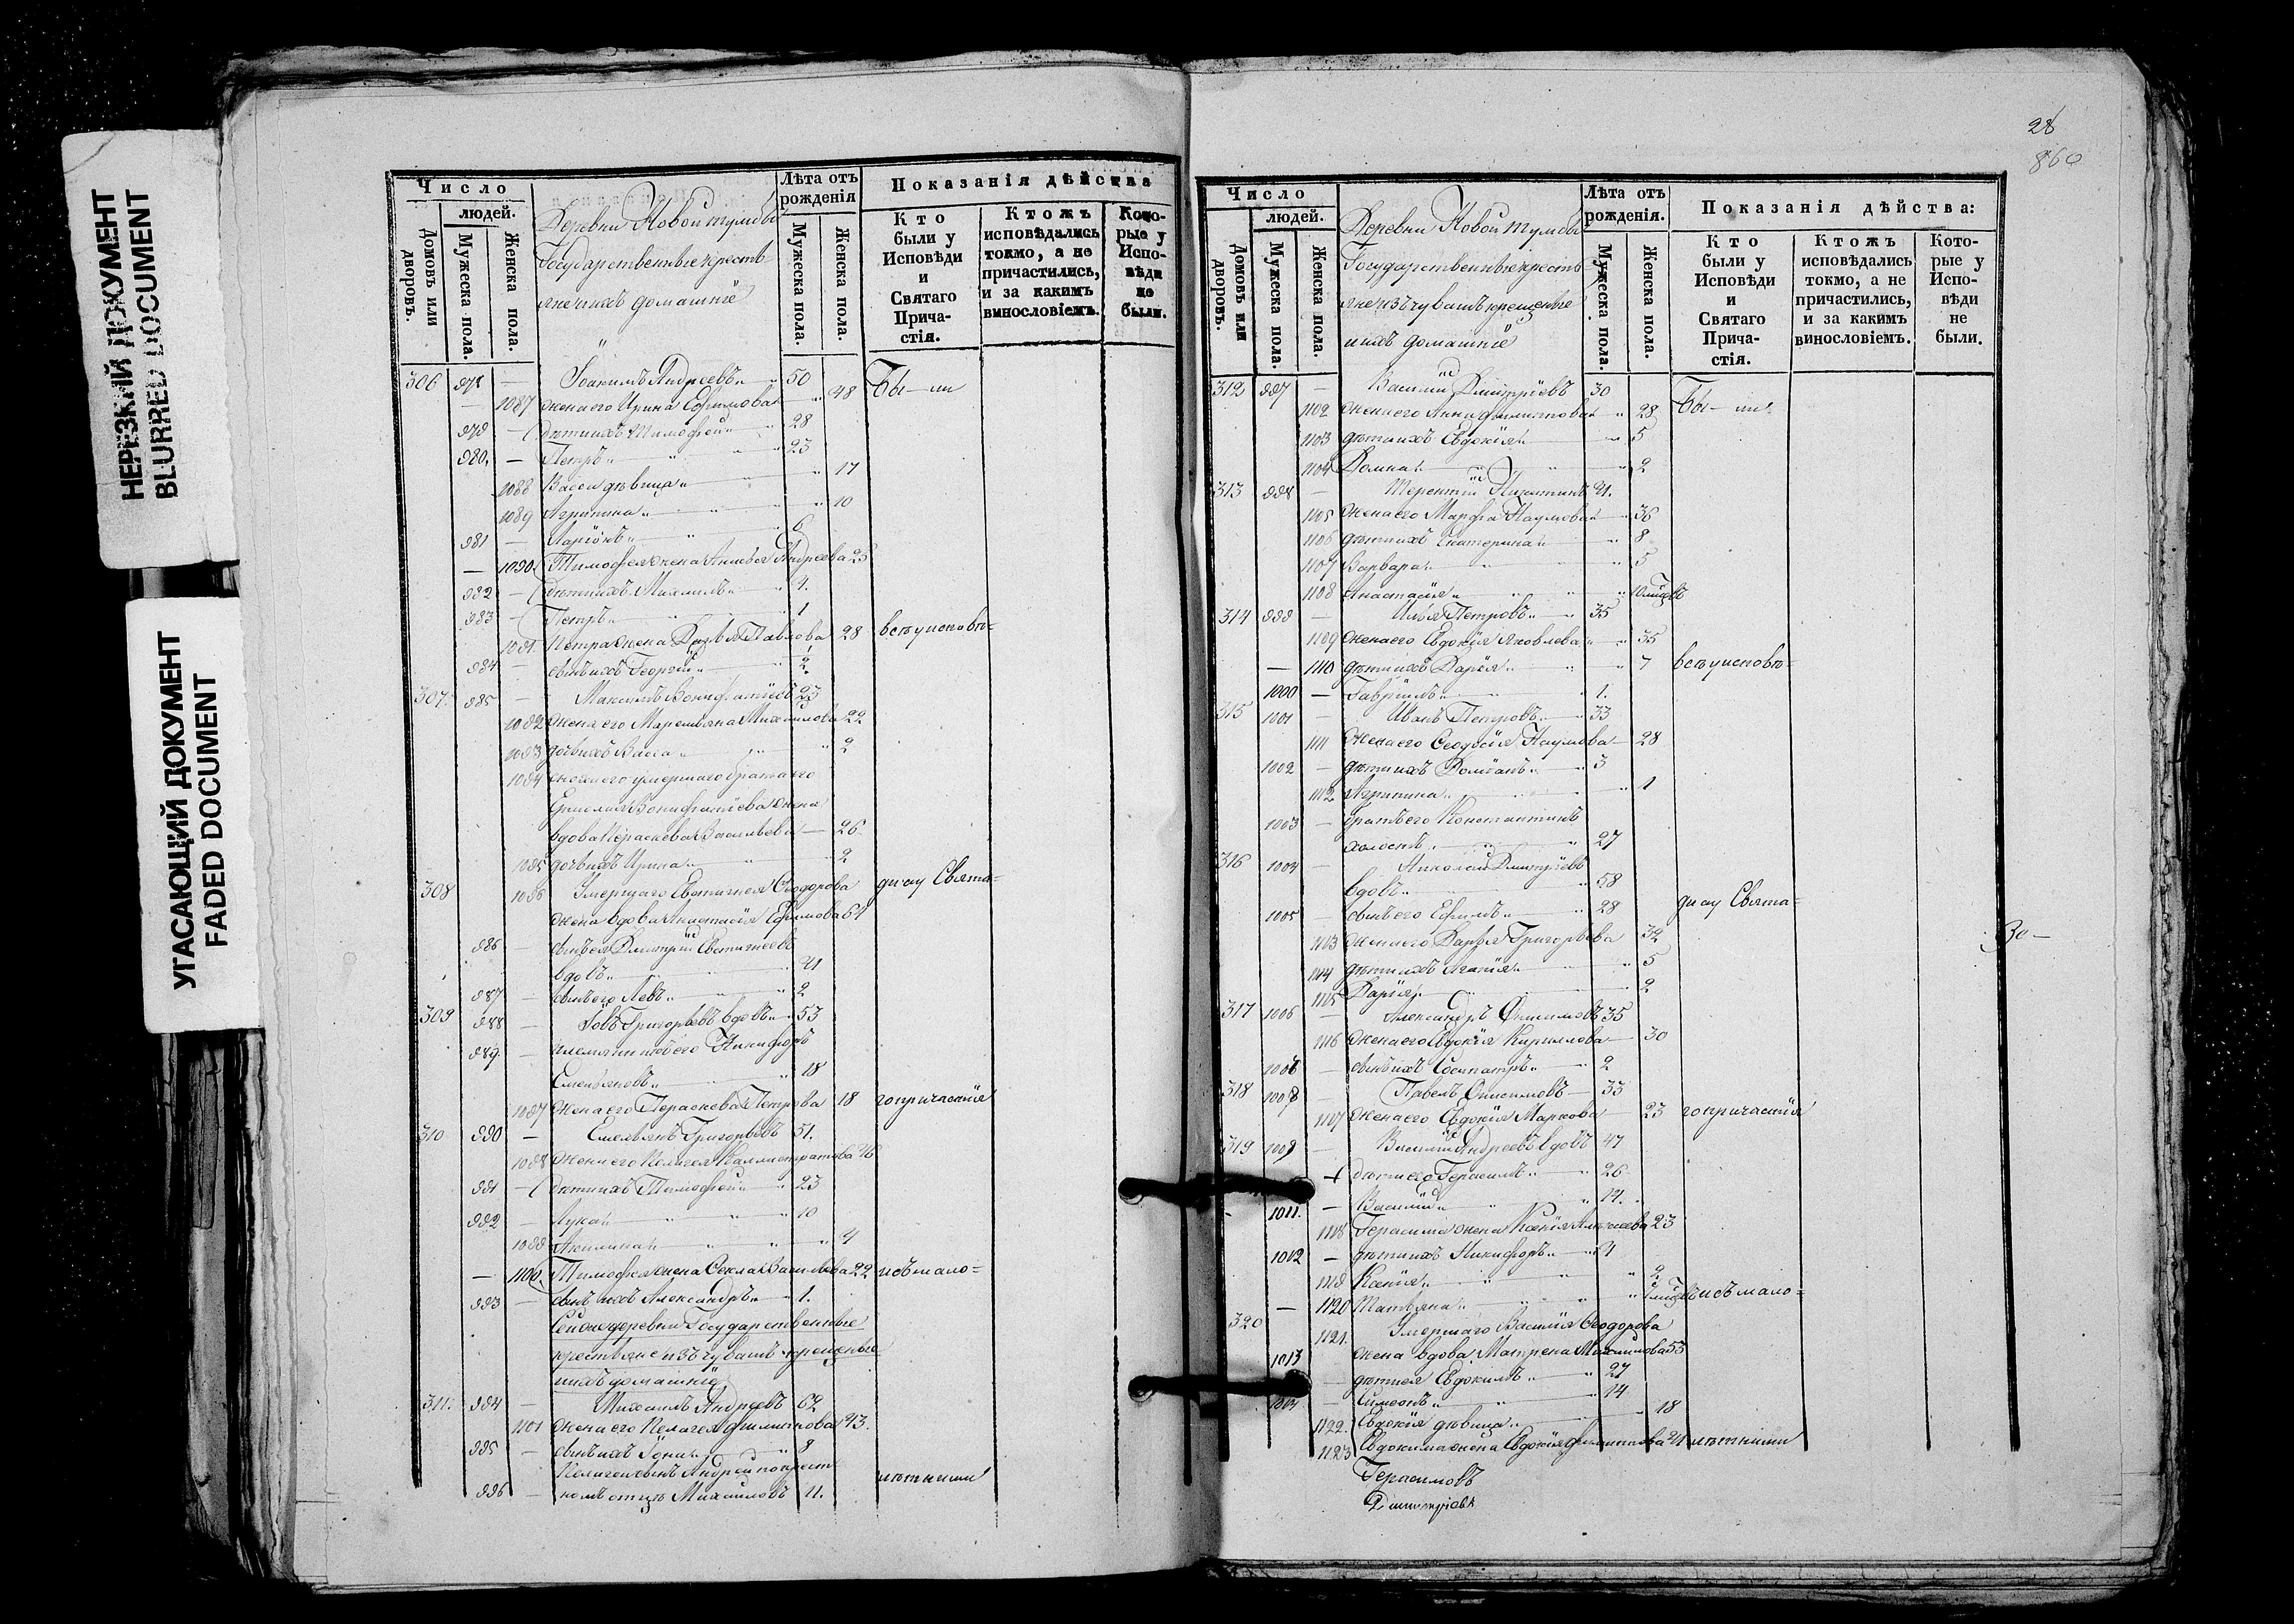 НЕРЕЗКИЙ ДОКУМЕНТ
BLURRED DOCUMENT
УГАСАЮЩИЙ ДОКУМЕНТ
FADED DOCUMENT
Число
людей.
Домовъ или дворовъ.
Мужеска пола.
Женска пола.
Деревни Новой
Государственные кресть
яне и ихъ домашніе
Лѣта отъ рожденія
Мужеска пола.
Женска пола.
Показанія дѣйства
Кто были у Исповѣди и Святаго Прича-стія.
Ктожъ исповѣдались токмо, а не причастились, и за какимъ винословіемъ.
Кото-рые у Испо-вѣди не были.
306 978 — Іоакимъ Андреевъ 50 Бы — ли
— 1087 жена его Ирина Ефимова 48
979 — дѣти ихъ Тимофей 28
980 — Петръ 23
1088 Васса дѣвица 17
1089 Агрипина 10
981 — Ларіонъ 6
— 1090 Тимофея жена Андреева 25
982 — дѣти ихъ Михаилъ 4
983 — Петръ 1
1091 Петра жена Дарья Павлова 28 всѣ у исповѣ=
984 — сынъ ихъ Георгій 2
307 985 — Максимъ Вонифатіевъ 23
1092 жена его Маремьяна Михайлова 22
1093 дочь ихъ Васса 2
1094 умершаго брата его
Вонифатіева жена
вдова Параскева Васильева 26
1095 дочь ихъ Ирина 2
308 1096 Умершаго Евтихія Ѳеодорова ди и у Свята=
жена вдова Анастасія Ефимова 64
986 — сынъ ея Димитрій Евтихіевъ
вдовъ 41
987 — сынъ его Левъ 2
309 988 — Іовъ Григорьевъ вдовъ 53
989 — племянникъ его Никифоръ
Емельяновъ 18
1097 жена его Параскева Петрова 18 го причастія
310 990 — Емельянъ Григорьевъ 51
1098 жена его Пелагея Каллистратова 46
991 — дѣти ихъ Тимофей 23
992 — Лука 10
1099 Акилина 4
— 1100 Тимофея жена Ѳекла Васильева 22 и съ мало=
993 — сынъ ихъ Александръ 1
Сей же деревни Государственные
крестьяне изъ чувашъ крещеные
и ихъ домашніе
311 994 — Михаилъ Андреевъ 62
1101 жена его Пелагея Филиппова 43
995 — сынъ ихъ Іона 8
Пелагеи сынъ Андрей по крест
996 — номъ отцѣ Михайловъ 11 лѣтними
28
860
Число
людей.
Домовъ или дворовъ.
Мужеска пола.
Женска пола.
Деревни Новой
Государственные кресть
яне изъ чувашъ крещеные
и ихъ домашніе
Лѣта отъ рожденія.
Мужеска пола.
Женска пола.
Показанія дѣйства:
Кто были у Исповѣди и Святаго Прича-стія.
Ктожъ исповѣдались токмо, а не причастились, и за какимъ винословіемъ.
Кото-рые у Испо-вѣди не были.
312 997 — Василій Димитріевъ 30 Бы — ли
1102 жена его Анна Филиппова 28
1103 дѣти ихъ Евдокія 5
1104 Домна 2
313 998 — Терентій Никитинъ 41
1105 жена его Марфа Наумова 36
1106 дѣти ихъ Екатерина 8
1107 Варвара 5
1108 Анастасія
314 999 — Илья Петровъ 35
1109 жена его Евдокія Яковлева 35
— 1110 дѣти ихъ Дарія 7 всѣ у исповѣ=
1000 — Гавріилъ 1
315 1001 — Иванъ Петровъ 33
1111 жена его Ѳеодосія Наумова 28
1002 — дѣти ихъ 3
1112 Агрипина 1
1003 — братъ его Константинъ
холостъ 27
316 1004 — Николай Димитріевъ
вдовъ 58
1005 — сынъ его Ефимъ 28 ди и у Свята=
1113 жена его Дарья Григорьева 32
1114 дѣти ихъ Агапія 5
1115 Дарія 2
30 —
317 1006 — Александръ Онисимовъ 35
1116 жена его Евдокія Кириллова 30
1006 — сынъ ихъ 2
318 1008 — Павелъ Онисимовъ 33
1117 жена его Евдокія Маркова 23 го причастія
319 1009 — Василій Андреевъ вдовъ 47
дѣти его Герасимъ 26
1011 — Василій 14
1118 Герасима жена Ксенія Алексѣева 23
1012 — дѣти ихъ Никифоръ 4
1119 Ксенія 2
— 1120 Татьяна и съ мало=
320 1121 Умершаго Василія Ѳеодорова
жена вдова Матрена Михайлова 53
1013 — дѣти ея Евдокимъ 27
1014 — Симеонъ 14
1122 Евдокія дѣвица 18
1123 Евдокима жена Евдокія Филиппова 21 лѣтними
Герасимовъ
Димитріевъ